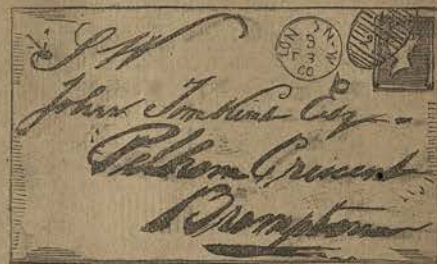 S W
LON JN-W
S
T 3
60
John Tomkins Esq
Pelham Crescent
Brompton